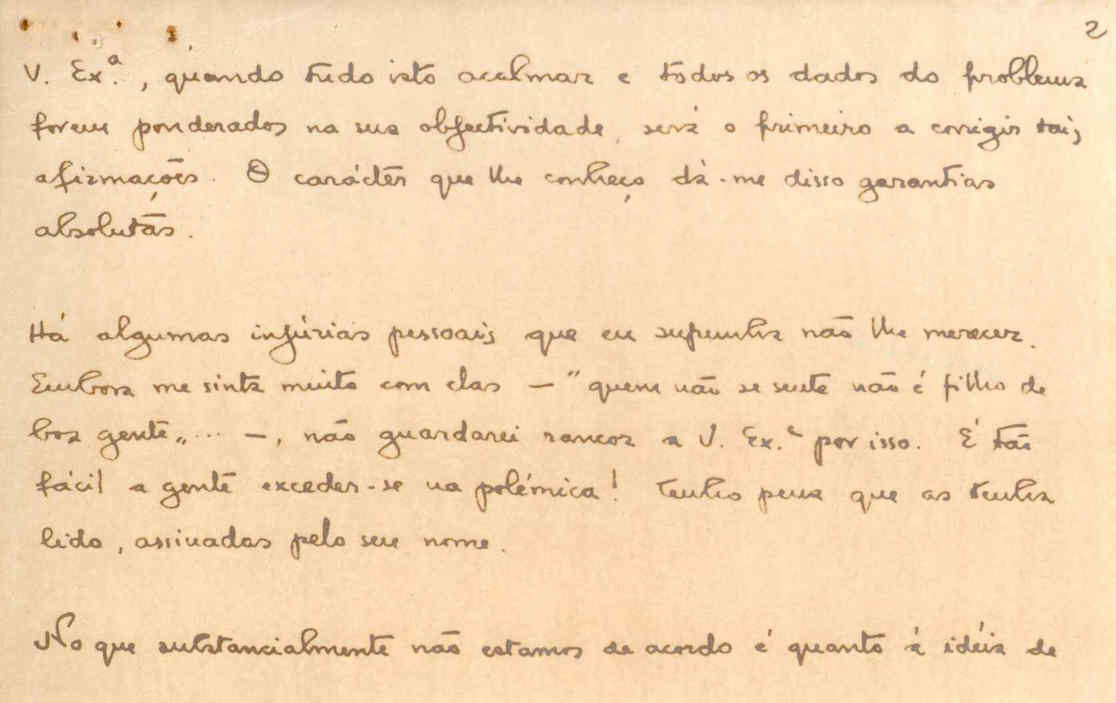 2
V. Ex.ª, quando tudo isto acalmar e todos os dados do problema
forem ponderados na sua objectividade, será o primeiro a corrigir tais
afirmações. O carácter que lhe conheço dá-me disso garantias
absolutas.
Há algumas injúrias pessoais que eu supunha não lhe merecer.
Embora me sinta muito com elas — "quem não se sente não é filho de
boa gente„... —, não guardarei rancor a V. Ex.ª por isso. É tão
fácil a gente exceder-se na polémica! Tenho pena que as tenha
lido, assinadas pelo seu nome.
No que substancialmente não estamos de acordo é quanto à idéia de